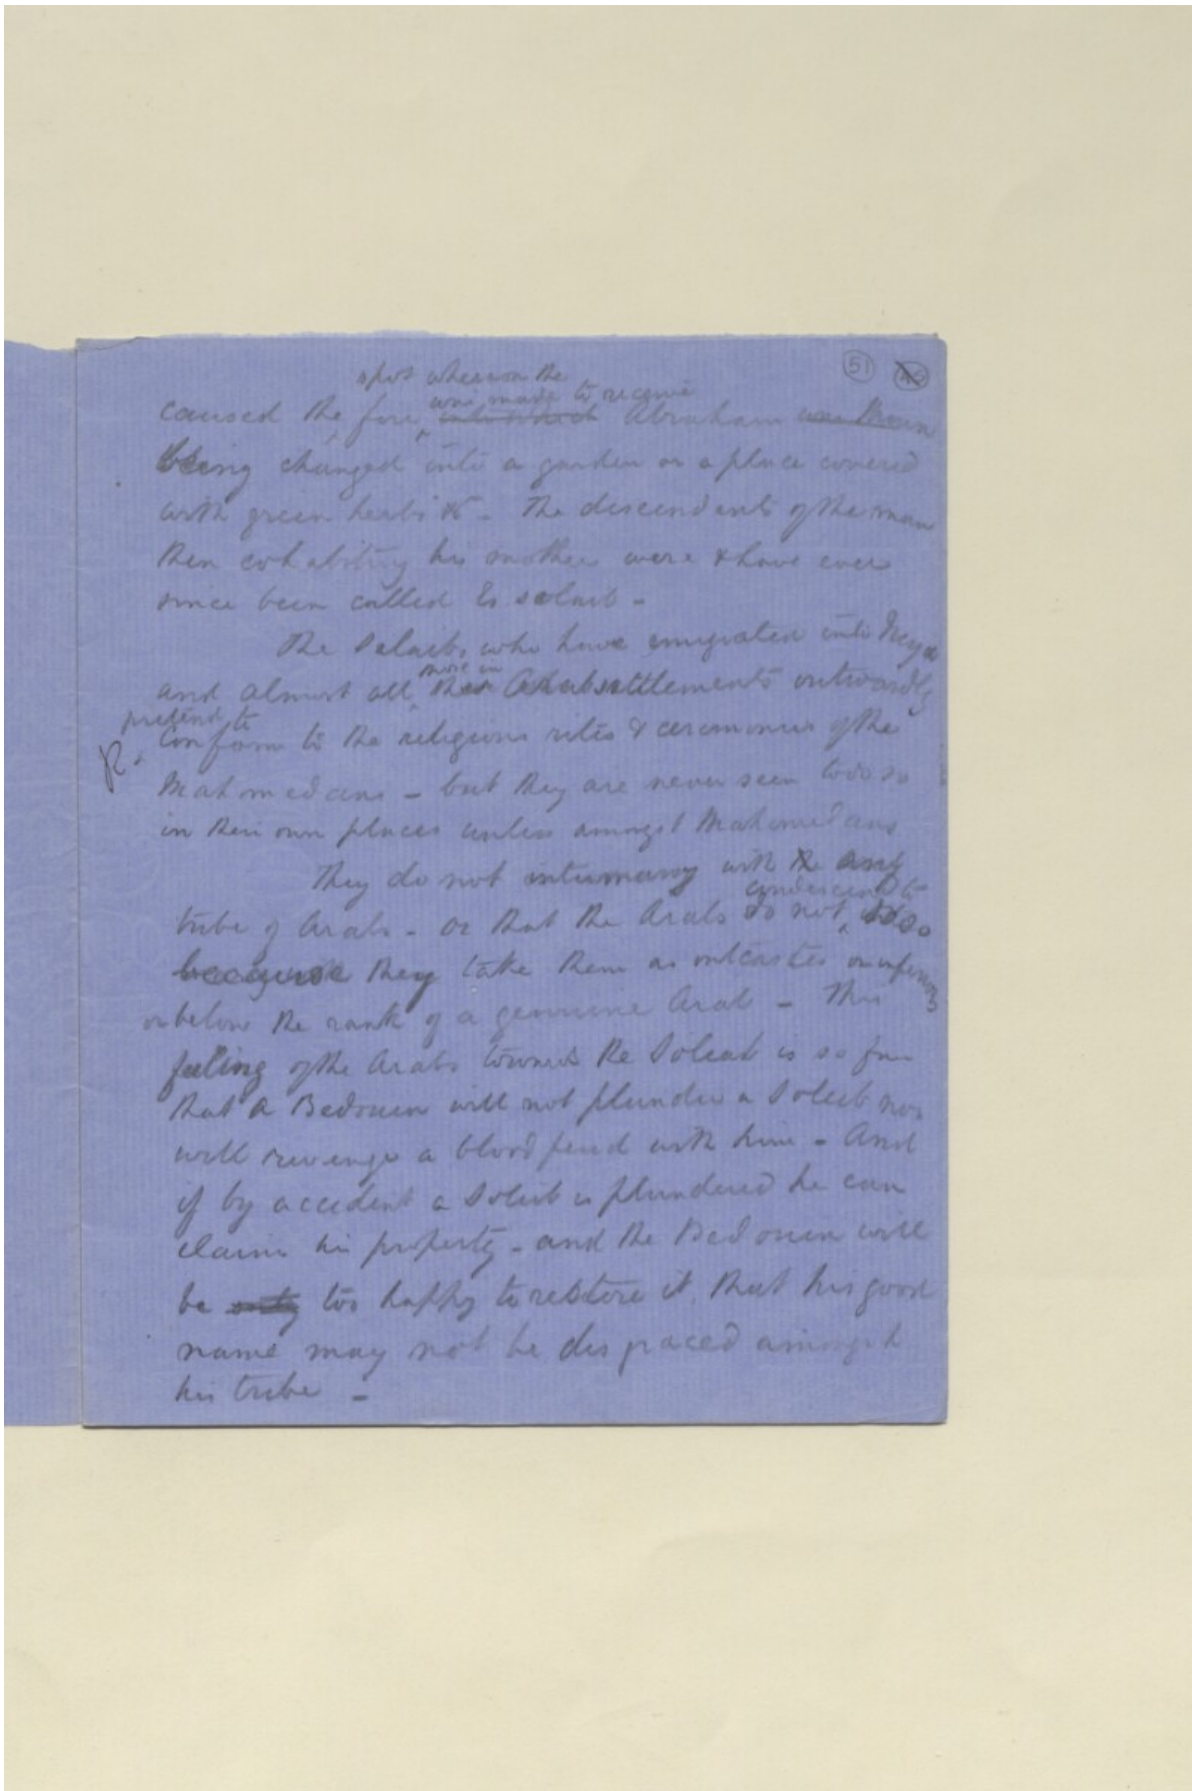 51
spot whereon the
was made to receive
caused the fire into which Abraham was thrown
being changed into a garden or a place covered
with green herbs &c - The descendants of the man
then cohabiting his mother were & have ever
since been called Es soleib -
The Selaibs who have emigrated into Nejd
more in
and almost all Arab settlements outwardly
pretend to
conform to the religious rites & ceremonies of the
Mahomedans - but they are never seen to do so
in their own places unless amongst Mahomedans
They do not intermarry with any
condescend to
tribe of Arabs - or that the Arabs do not do so
because they take them as outcastes or inferiors
or below the rank of a genuine Arab - This
feeling of the Arabs towards the Soleib is so far
that a Bedouin will not plunder a Soleib nor
will revenge a blood feud with him - And
if by accident a Soleib is plundered he can
claim his property - and the Bedouin will
be only too happy to restore it, that his good
name may not be disgraced amongst
his tribe -